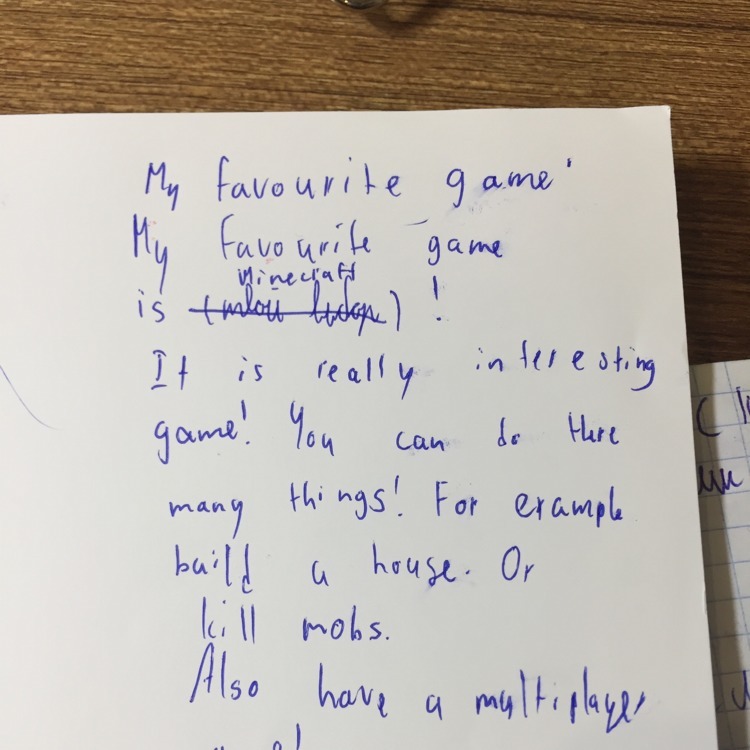 My favourite game
My favourite game
Minecraft
is !
It is really interesting
game! You can do there
many things! For example
build a house. Or
kill mobs.
Also have a multiplayer